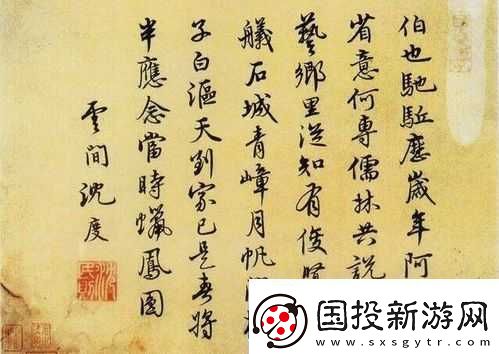 伯也馳駈應歲年阿
省意何專儒林共說
藝鄉里從知有俊
艤石城青嶂月帆
子白漚天到家已是春將
半應念當時蠟鳳圓
雲間沈度
国投新游网
www.sxsgytr.com